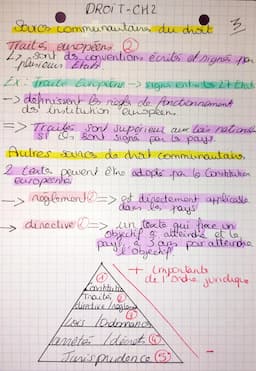 DROIT-CH2
3
Sources communautaires du droit
Traités européens ②
↳ sont ds conventions écrits et signés par
plusieurs Etats
Ex: Traité Européen → signés entre les Et Etats
→ définissent les règls de fonctionnement
ds institution européens.
=> Traités sont supérieur aux Loi national
si ils sont signé par le pays.
Autres sources de droit communautaires
2 texte peuvent être adopté par la Constitution
européenne
→ reglement ③ => est directement applicable
dans les pays
→ directive ③ => un texte qui fixe un
objectif à atteindre et le
pays, à 3 ans pour atteindre
l'objectif
+ importants
de l'ordre juridique
①
Constitution
Traités ②
directive / reglement
③
Lois / Ordonnances
arrêtés / décrets ④
Jurisprudence ⑤
-